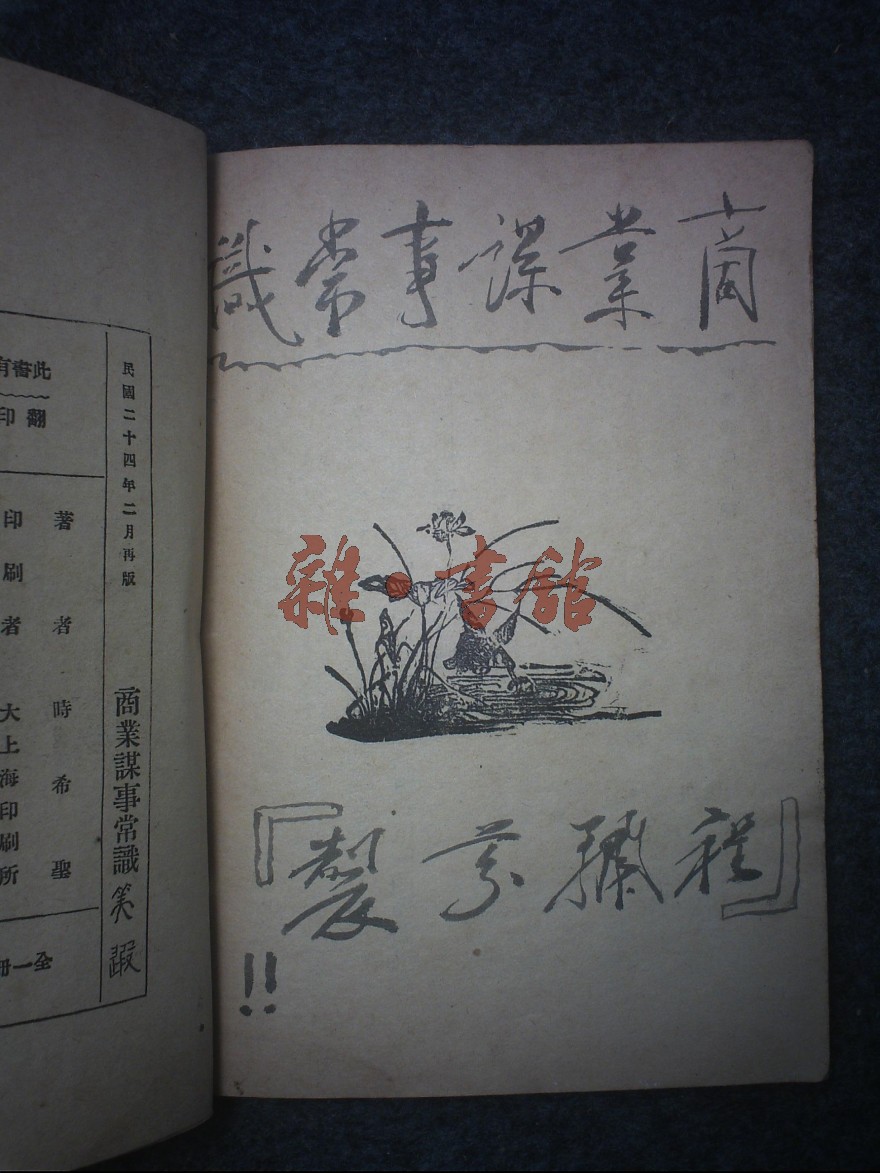 商業謀事常識
製
!!
民國二十四年二月再版
商業謀事常識
此書有
翻印
著者時希聖
印刷者大上海印刷所
全一冊
雜·書館